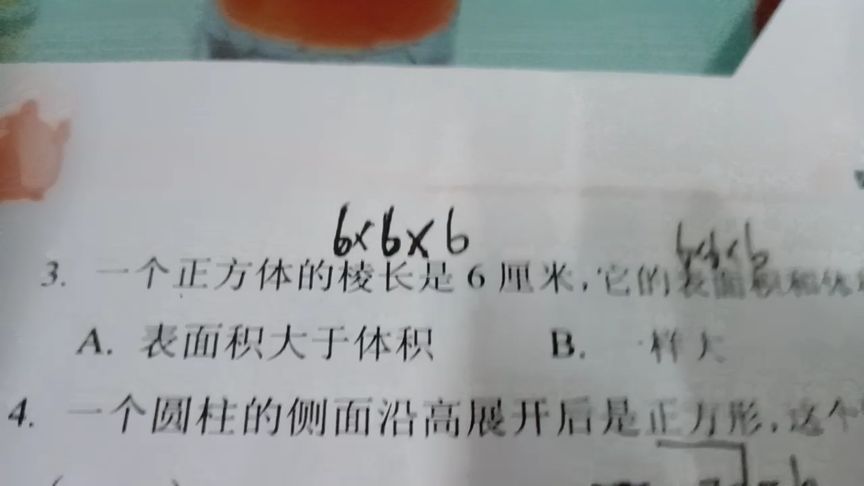 6×6×6 6×6×6
3. 一个正方体的棱长是 6 厘米，它的表面积和体
A. 表面积大于体积 B. 一样大
4. 一个圆柱的侧面沿高展开后是正方形，这个